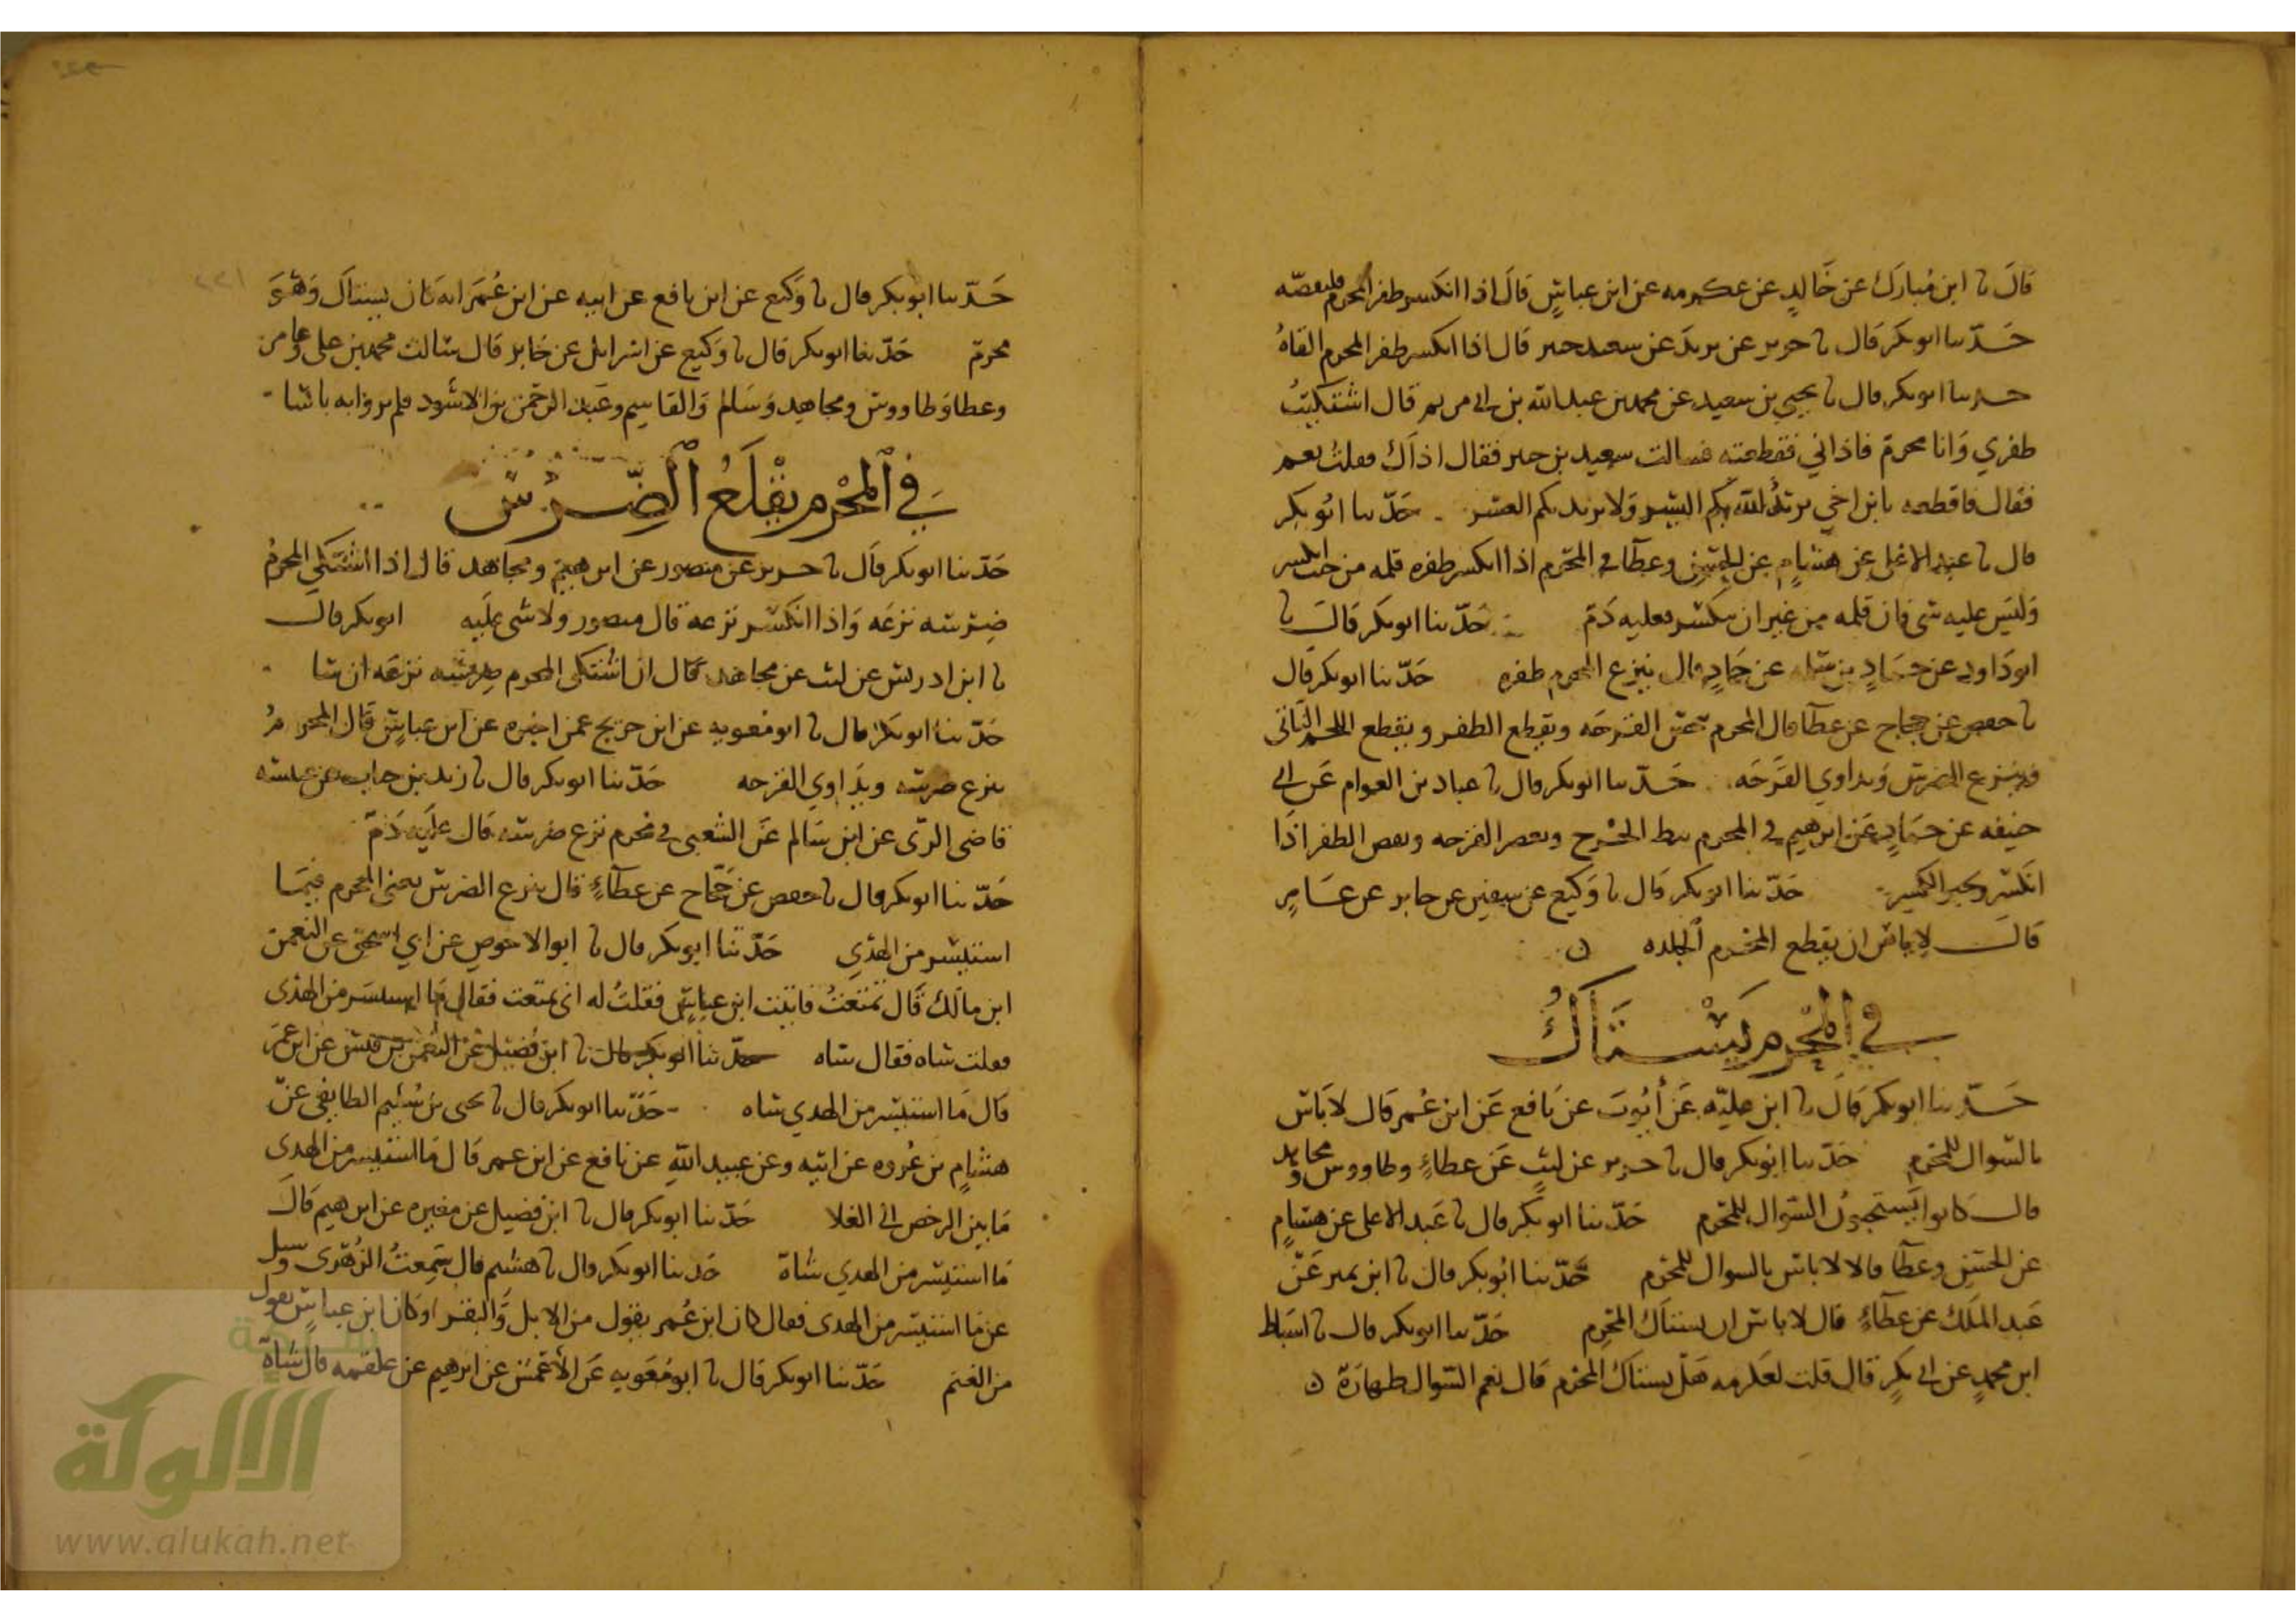 قال نا ابن مبارك عن خالد عن عكرمه عن ابن عباس قال اذا انكسر ظفر المحرم فليقصه
حدثنا ابو بكر قال نا جرير عن يزيد عن سعيد بن جبير قال اذا انكسر ظفر المحرم القاه
حدثنا ابو بكر قال نا يحيى بن سعيد عن محمد بن عبد الله بن ابي مريم قال اشتكيت
ظفري وانا محرم فاذاني فقطعته فسالت سعيد بن جبير فقال اذاك فقلت نعم
فقال فاقطعه يابن اخي يريد الله بكم اليسر ولا يريد بكم العسر حدثنا ابو بكر
قال نا عبد الاعلى عن هشام عن الحسن وعطا في المحرم اذا انكسر ظفره قلمه من حيث انكسر
وليس عليه شى فان قلمه من غير ان ينكسر فعليه دم حدثنا ابو بكر قال نا
ابو داود عن حماد بن سلمه عن حماد قال ينزع المحرم ظفره حدثنا ابو بكر قال
نا حفص عن حجاج عن عطا قال المحرم القرحه ويقطع الظفر ويقطع اللحم
وينزع الضرس ويداوي القرحه حدثنا ابو بكر قال نا عباد بن العوام عن ابي
حنيفه عن حماد عن ابرهيم في المحرم يبط الجرح ويعصر القرحه ويقص الظفر اذا
انكسر ويجبر الكسير حدثنا ابو بكر قال نا وكيع عن سفين عن جابر عن عامر
قال لا باس ان يقطع المحرم الجلده
في المحرم يستاك
حدثنا ابو بكر قال نا ابن عليه عن أيوب عن نافع عن ابن عمر قال لا باس
بالسواك للمحرم حدثنا ابو بكر قال نا جرير عن ليث عن عطاء وطاووس ومجاهد
قال كانوا يستحبون السواك للمحرم حدثنا ابو بكر قال نا عبد الاعلى عن هشام
عن الحسن وعطا قالا لا باس بالسواك للمحرم حدثنا ابو بكر قال نا ابن نمير عن
عبد الملك عن عطاء قال لا باس ان يستاك المحرم حدثنا ابو بكر قال نا اسباط
ابن محمد عن ابي بكر قال قلت لعكرمه هل يستاك المحرم قال نعم السواك طهارة
حدثنا ابو بكر قال نا وكيع عن ابن نافع عن ابيه عن ابن عمر انه كان يستاك وهو
محرم حدثنا ابو بكر قال نا وكيع عن اسرايل عن جابر قال سالت محمد بن علي وعامر
وعطا وطاووس ومجاهد وسالم والقاسم وعبد الرحمن بن الاسود فلم يروا به باسا
في المحرم يقلع الضرس
حدثنا ابو بكر قال نا جرير عن منصور عن ابرهيم ومجاهد قال اذا اشتكى المحرم
ضرسه نزعه واذا انكسر نزعه قال منصور ولا شى عليه ابو بكر قال
نا ابن ادريس عن ليث عن مجاهد قال ان اشتكى المحرم ضرسه نزعه ان شا
حدثنا ابو بكر قال نا ابو معويه عن ابن جريج عمن اخبره عن ابن عباس قال المحرم
ينزع ضرسه ويداوي القرحه حدثنا ابو بكر قال نا زيد بن حباب عن عنبسه
قاضي الري عن ابن سالم عن الشعبي في محرم نزع ضرسه قال عليه دم
حدثنا ابو بكر قال نا حفص عن حجاج عن عطاء قال ينزع الضرس يعني المحرم فيما
استيسر من الهدي حدثنا ابو بكر قال نا ابو الاحوص عن ابي اسحق عن النعمن
ابن مالك قال تمتعت فاتيت ابن عباس فقلت له اني تمتعت فقال ما استيسر من الهدى
فقلت شاه فقال شاه حدثنا ابو بكر قال نا ابن فضيل عن النعمن بن قيس عن ابن عمر
قال ما استيسر من الهدي شاه حدثنا ابو بكر قال نا يحيى بن سليم الطايفي عن
هشام بن عروه عن ابيه وعن عبيد الله عن نافع عن ابن عمر قال ما استيسر من الهدى
ما بين الرخص الى الغلا حدثنا ابو بكر قال نا ابن فضيل عن مغيره عن ابرهيم قال
ما استيسر من الهدي شاة حدثنا ابو بكر قال نا هشيم قال سمعت الزهري وسيل
عن ما استيسر من الهدى فقال كان ابن عمر يقول من الابل والبقر وكان ابن عباس يقول
من الغنم حدثنا ابو بكر قال نا ابو معويه عن الأعمش عن ابرهيم عن علقمه قال شاة
الألوكة
www.alukah.net